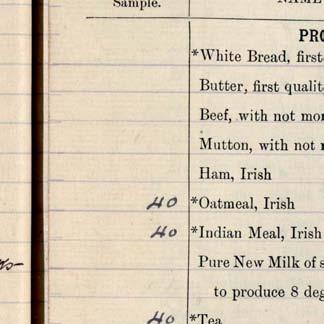 Sample.
NAME
PRO
*White Bread, first
Butter, first qualit
Beef, with not mo
Mutton, with not
Ham, Irish
40 *Oatmeal, Irish
40 *Indian Meal, Irish
Pure New Milk of s
to produce 8 deg
40 *Tea